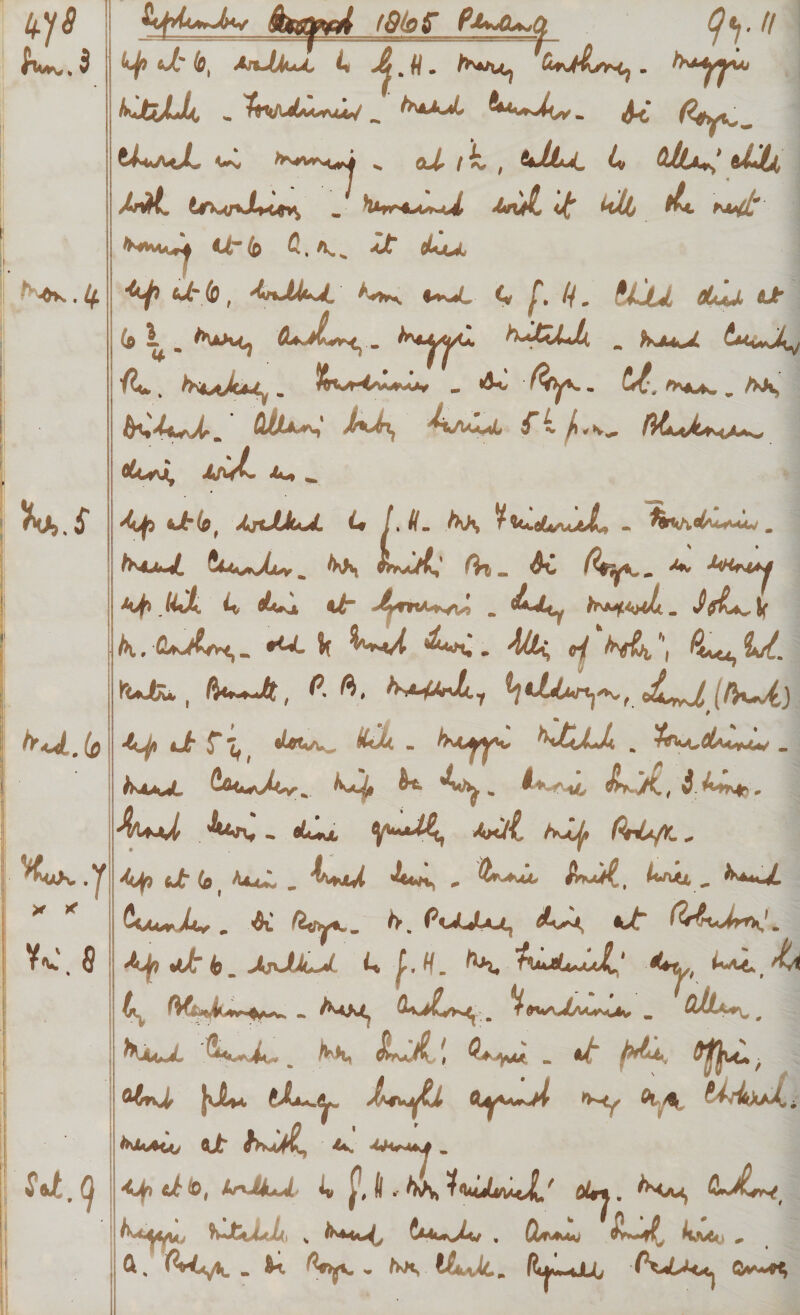 478 September 1865 Penang 99.11
Sun. 3 Up at 6, walked to g.H. Mary Anthony. Maggie
Mitchell - Fourdrinier - Maud Caunter - Di Roza -
Church in morning - at 1½, called to Allan's child
with convulsions - remained with it till the next
morning at 6 A.M. it died
Mon. 4 Up at 6, walked home and to g.H. Child died at
6¾. Mary Anthony - Maggie Mitchell - Maud Caunter,
Mackay. Fourdrinier - Di Roza - Col. Man - Mrs
Allan's baby buried 5½ p.m. Blackmans
dine with us -
Tues. 5 Up at 6, walked to g.H. Mrs Friederichs - Fourdrinier -
Maud Caunter. Mrs Smith's Bro - Di Roza - in evening
up Hill to dine at Governor's - Lady Maxwell - John &
M. Anthony - old & Ernest Lewis - of "Mohr",
Bennett, P. B. Maxwell, (Bank)
Wed. 6 Up at 5½, down Hill - Maggie Mitchell. Fourdrinier -
Maud Caunter. Miss - Annie Smith, 3 times -
Ernest Lewis - dine quietly with Miss Rodyk -
Thur. 7 Up at 6, rain - Ernest Lewis - Annie Smith, twice - Maud
x x Caunter - Di Roza - W. Peddley dine at Robertson's.
Fri. 8 Up at 6. walked to g.H. Mrs Friederichs' dog, twice,
by Blackman - Mary Anthony. Fourdrinier - Allan.
Maud Caunter. Mrs Smith's Annie - at police office,
about false charge brought against my
music at Smith's, in evening -
Sat. 9 Up at 6, walked to g.H. Mrs Friederichs' dog. Mary Anthony,
Maggie Mitchell. Maud Caunter. Annie Smith, twice -
A. Rodyk - Di Roza - Mrs Clark. Reginald Peddley arrives